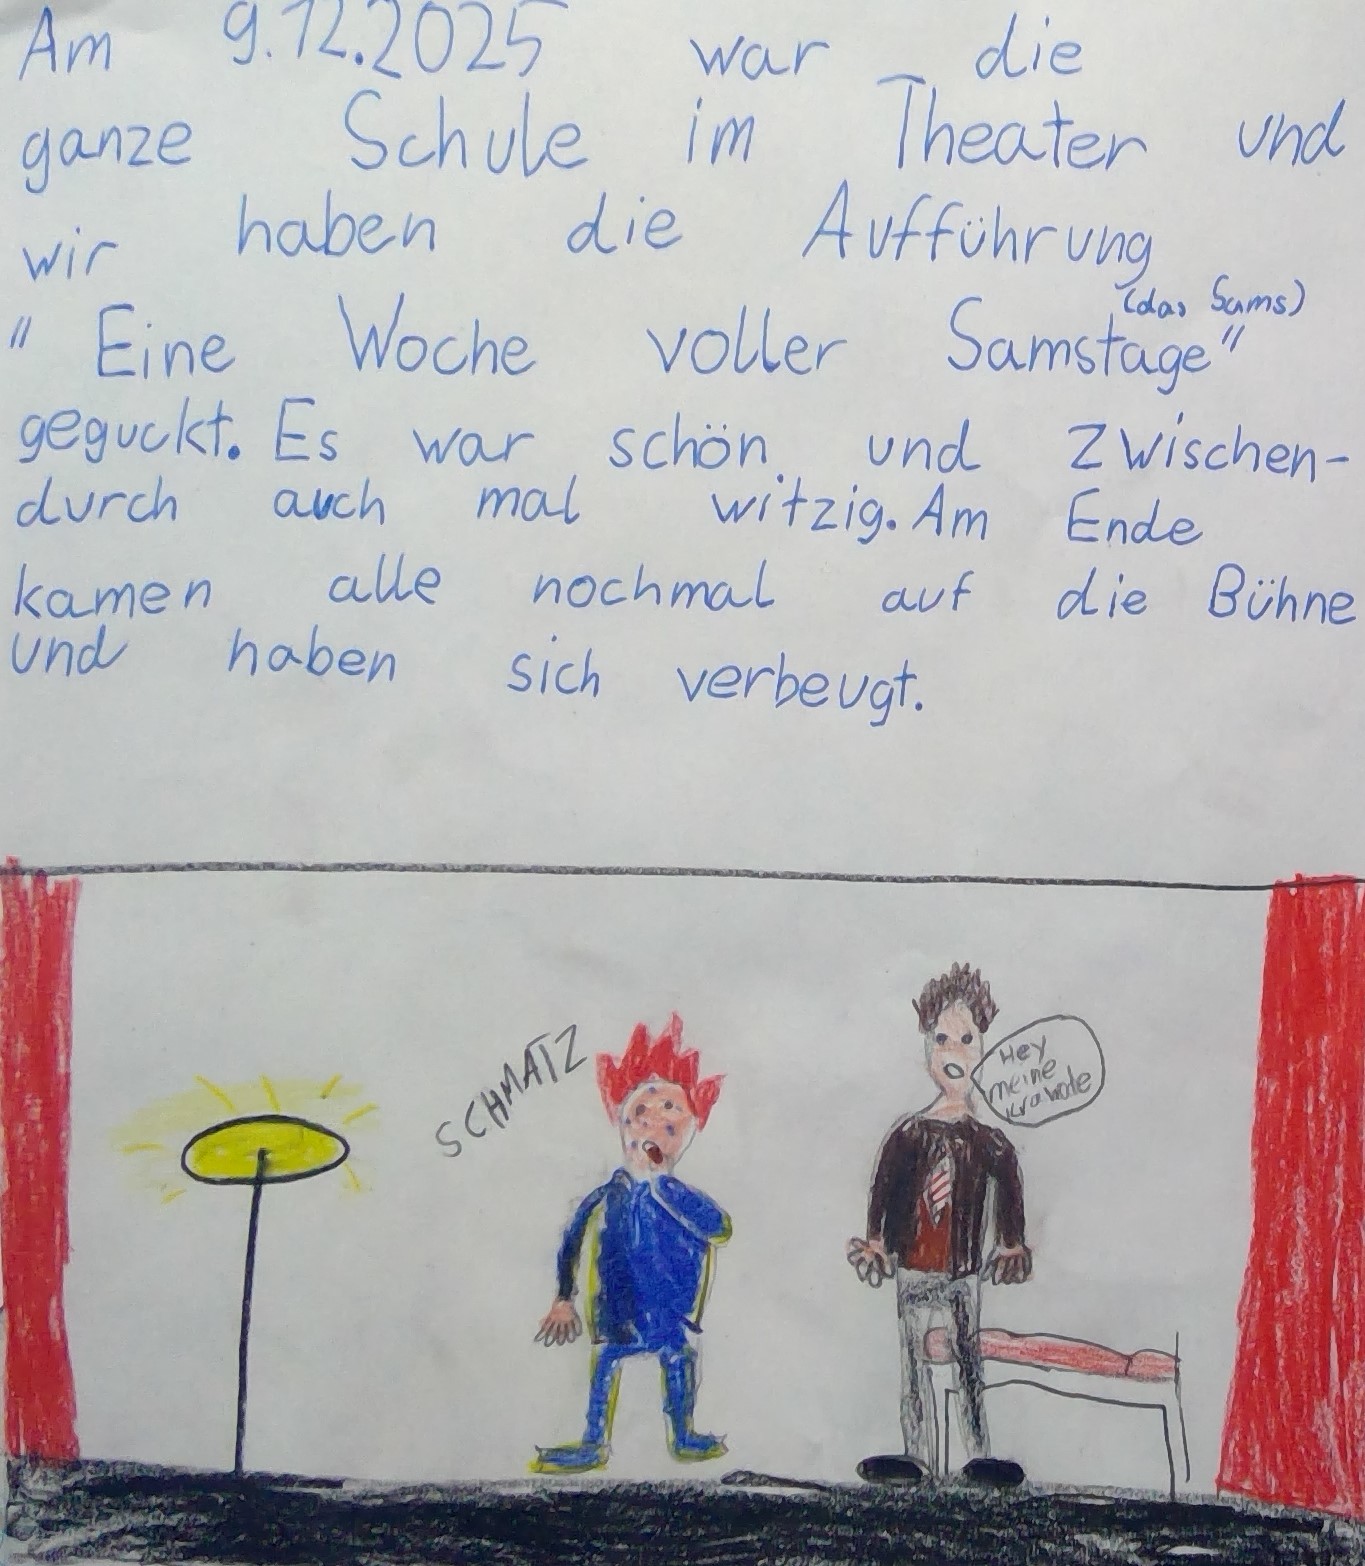 Am 9.12.2025 war die
ganze Schule im Theater und
wir haben die Aufführung
(das Sams)
" Eine Woche voller Samstage"
geguckt. Es war schön und zwischen-
durch auch mal witzig. Am Ende
kamen alle nochmal auf die Bühne
und haben sich verbeugt.
SCHMATZ
Hey
meine